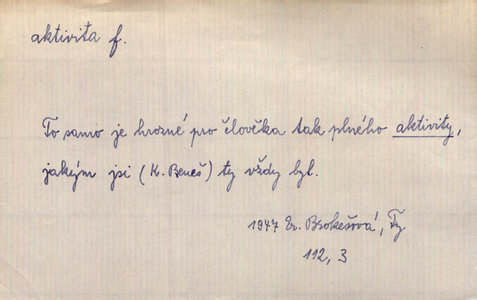 aktivita f.
To samo je hrozné pro člověka tak plného aktivity,
jakým jsi (K. Beneš) ty vždy byl.
1947 Er. Brokešová, Ty
112, 3